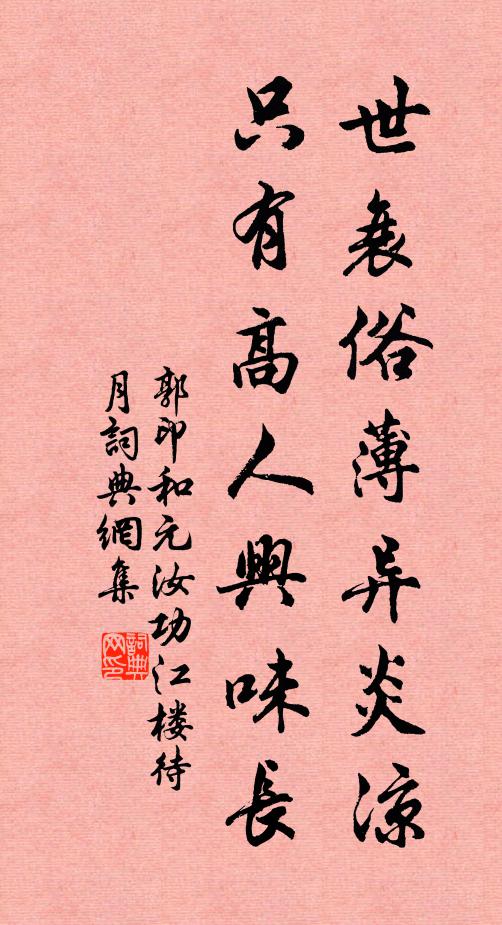 世衰俗薄异炎凉
只有高人興味長
郭印和元汝功江楼待
月詞典網集
詞典
网印